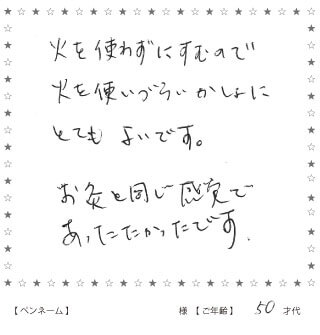 火を使わずにすむので
火を使いづらいかしょに
とても よいです。
お灸と同じ感覚で
あったたかったです.
【ペンネーム】 様 【ご年齢】 50 才代